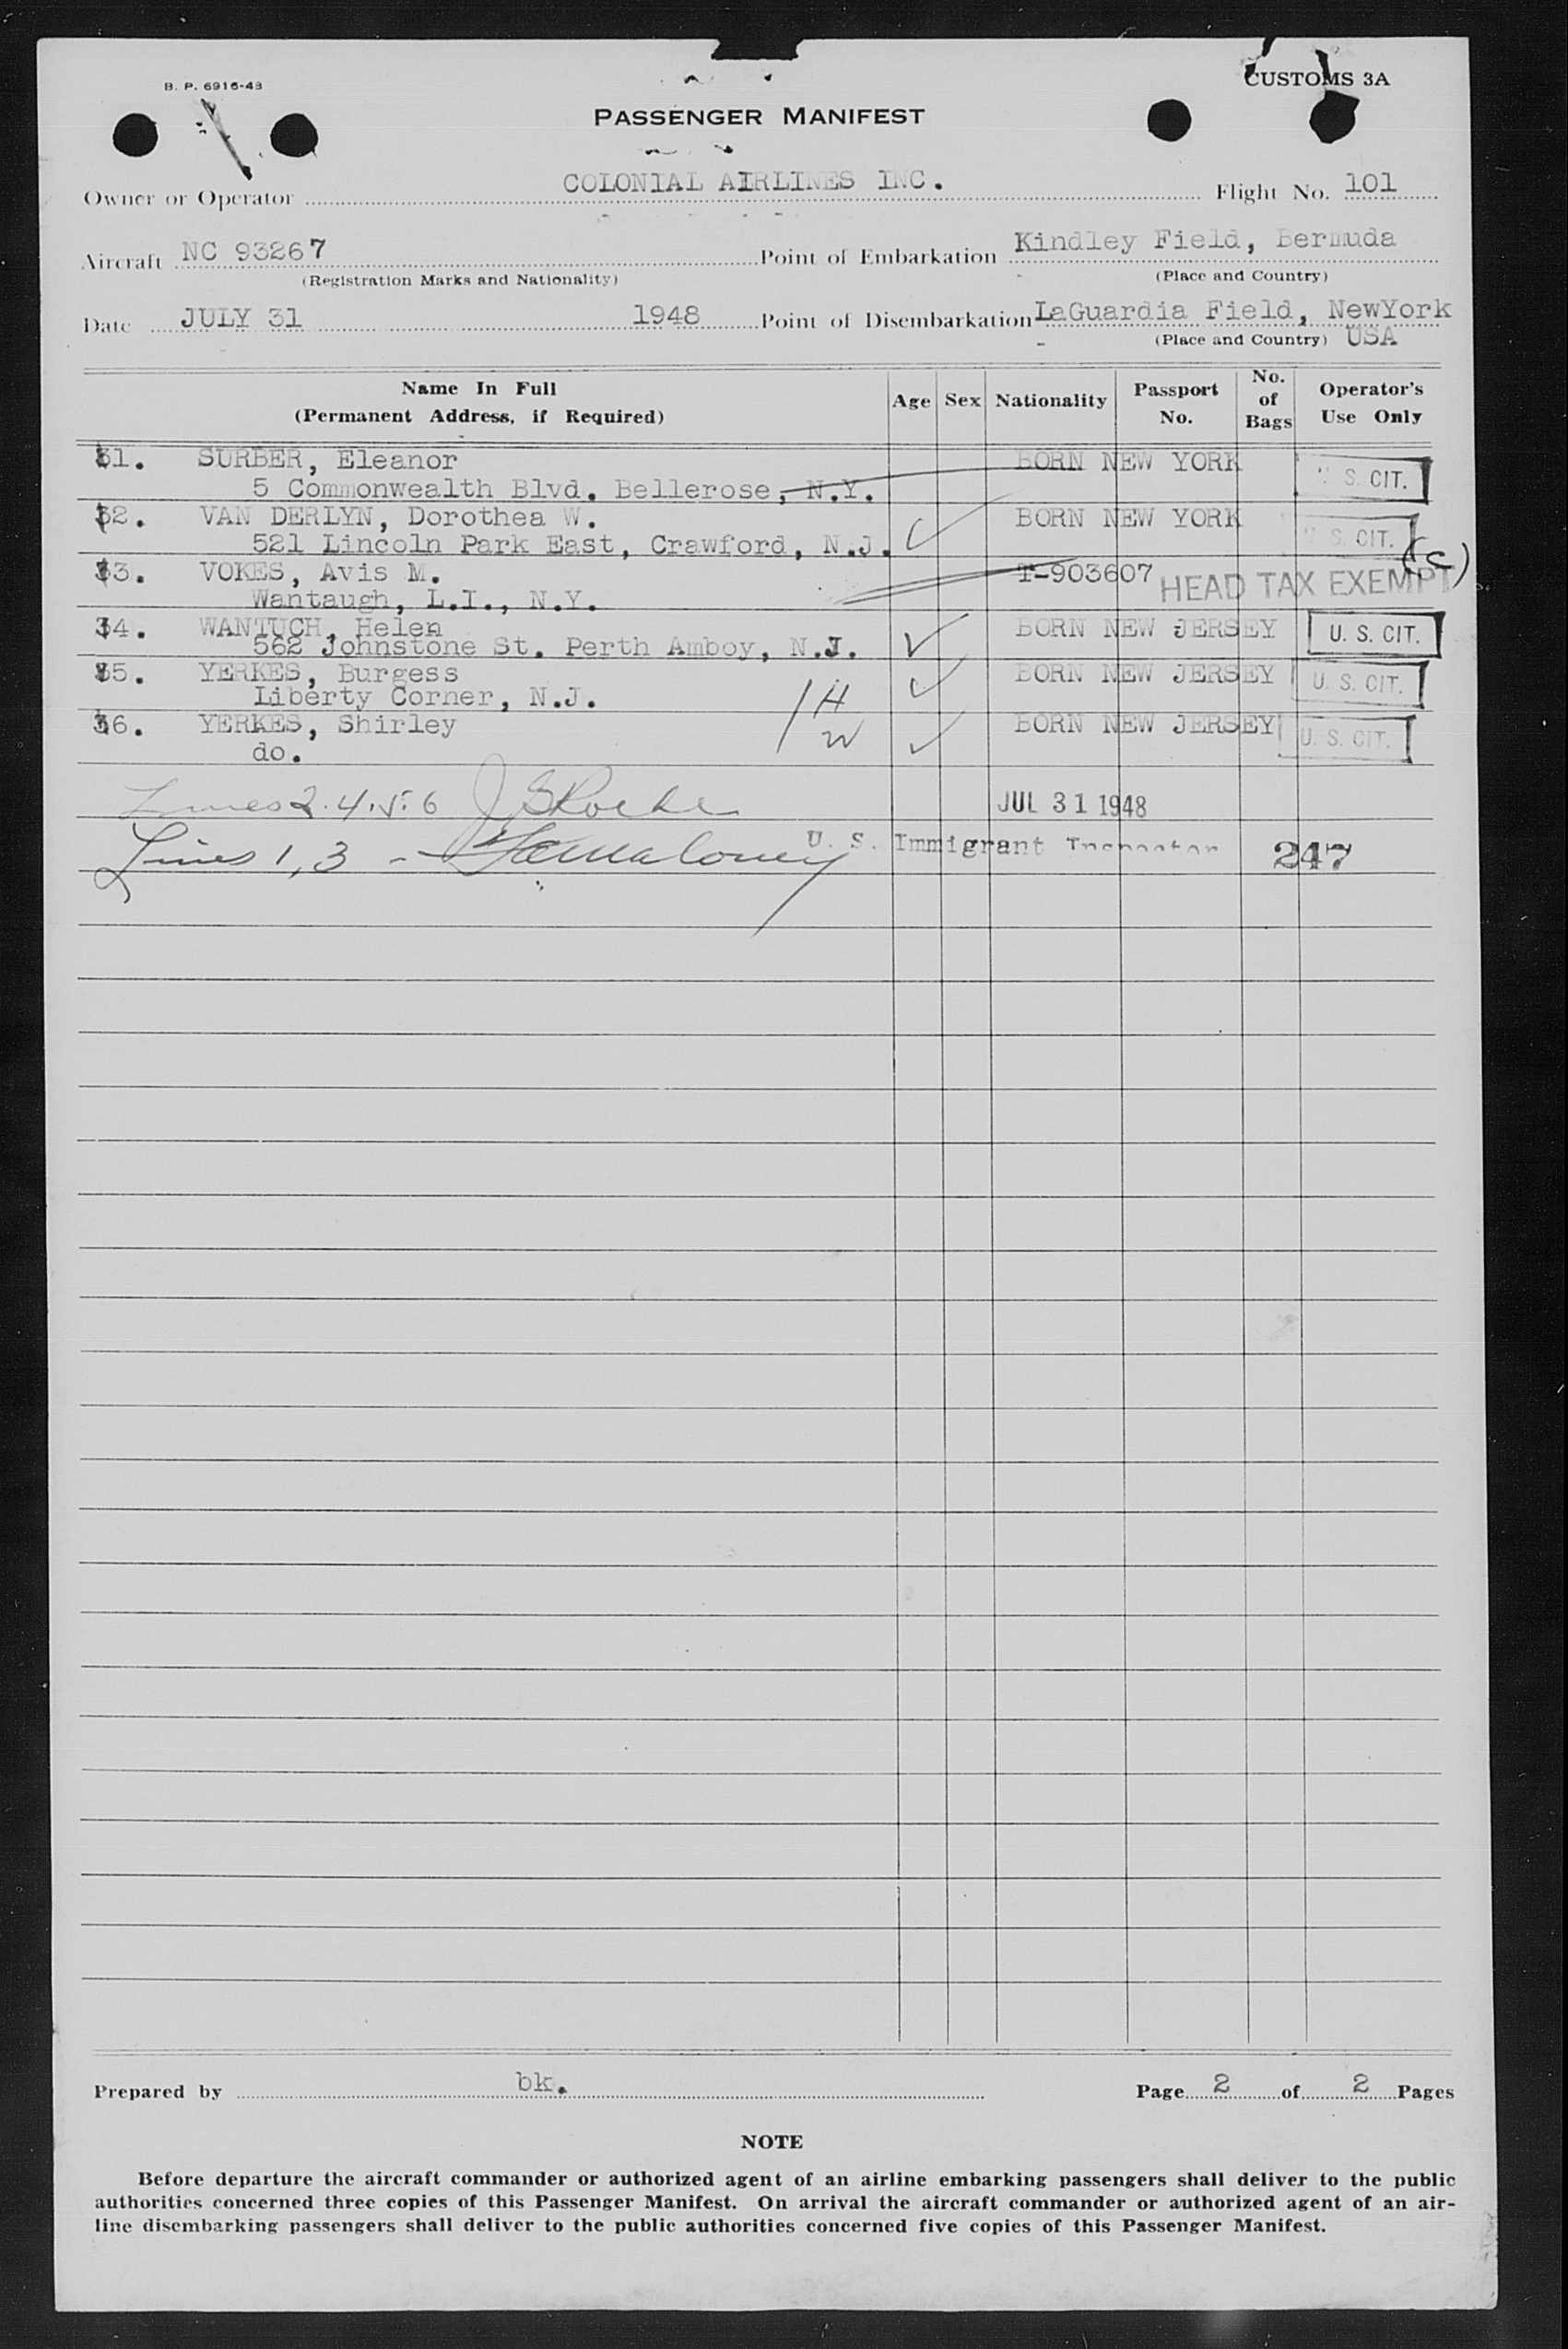 B. P. 6916-48
CUSTOMS 3A
PASSENGER MANIFEST
Owner or Operator COLONIAL AIRLINES INC. Flight No. 101
Aircraft NC 93267 Point of Embarkation Kindley Field, Bermuda
(Registration Marks and Nationality) (Place and Country)
Date JULY 31 1948 Point of Disembarkation LaGuardia Field, NewYork
(Place and Country) USA
Name In Full (Permanent Address, if Required) Age Sex Nationality Passport No. No. of Bags Operator's Use Only
31. SURBER, Eleanor BORN NEW YORK
5 Commonwealth Blvd. Bellerose, N.Y. S. CIT.
32. VAN DERLYN, Dorothea W. BORN NEW YORK
521 Lincoln Park East, Crawford, N.J. S. CIT.
33. VOKES, Avis M. T-903607 HEAD TAX EXEMPT (c)
Wantaugh, L.I., N.Y.
34. WANTUCH, Helen BORN NEW JERSEY U. S. CIT.
562 Johnstone St. Perth Amboy, N.J.
35. YERKES, Burgess BORN NEW JERSEY U. S. CIT.
Liberty Corner, N.J. H
36. YERKES, Shirley BORN NEW JERSEY U. S. CIT.
do. W
Lines 2.4.5.6 JUL 31 1948
Lines 1,3 - U. S. Immigrant Inspector 247
Prepared by bk. Page 2 of 2 Pages
NOTE
Before departure the aircraft commander or authorized agent of an airline embarking passengers shall deliver to the public
authorities concerned three copies of this Passenger Manifest. On arrival the aircraft commander or authorized agent of an air-
line disembarking passengers shall deliver to the public authorities concerned five copies of this Passenger Manifest.